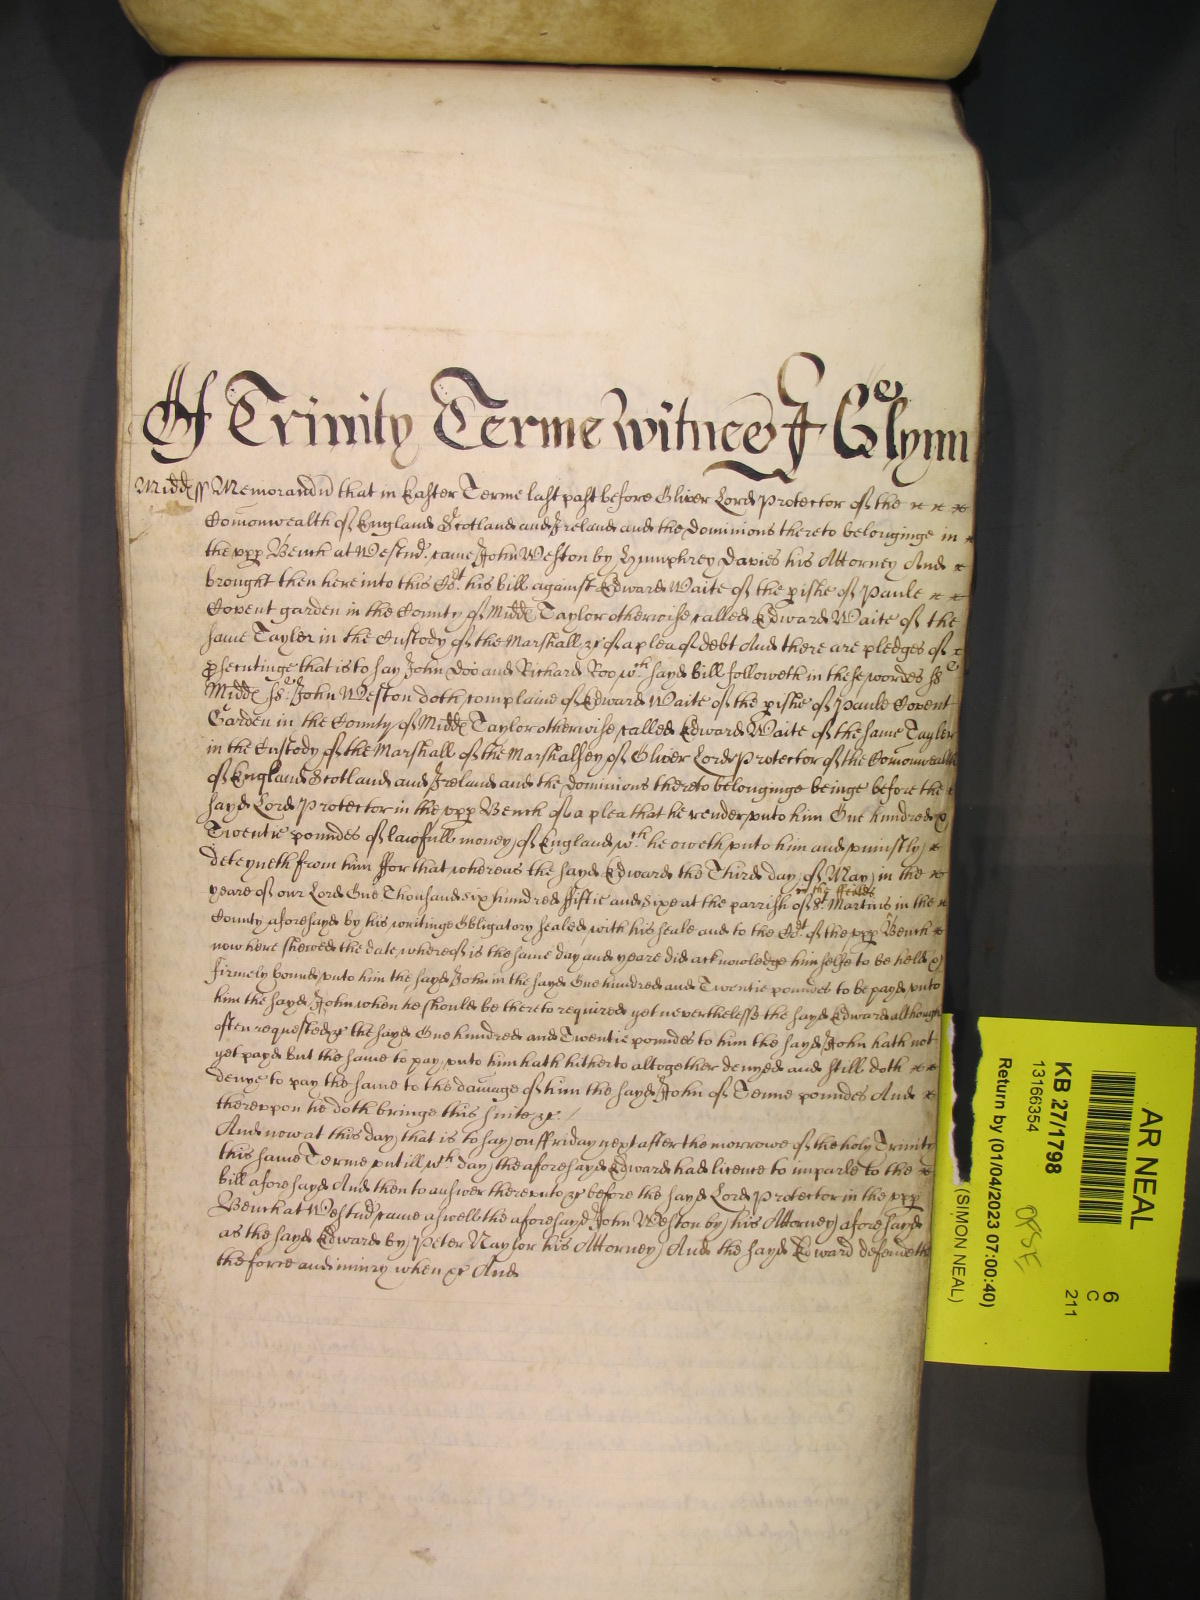 Of Trinity Terme witnes J Glynn
Midd ss Memorandū that in Easter Terme last past before Oliver Lord Protector of the
Comonwealth of England Scotland and Ireland and the Dominions thereto belonginge in
the vpp Bench at Westmr. came John Weston by Humphrey Davies his Attorney And
brought then here into this Cot. his bill against Edward Waite of the pishe of Paule
Covent garden in the County of Midd Taylor otherwise called Edward Waite of the
same Tayler in the Custody of the Marshall &c of a plea of debt And there are pledges of
psecutinge that is to say John Doo and Richard Roo wch sayd bill followeth in these wordes ss
Midd ss. John Weston doth complaine of Edward Waite of the pishe of Paule Covent
Garden in the County of Midd Taylor otherwise called Edward Waite of the same Tayler
in the Custody of the Marshall of the Marshalsey of Oliver Lord Protector of the Comonwealth
of England Scotland and Ireland and the Dominions thereto belonginge beinge before the
sayd Lord Protector in the vpp Bench of a plea that he render vnto him One hundred &
Twentie poundes of lawfull money of England wch he oweth vnto him and vniustly
deteyneth from him ffor that whereas the sayd Edward the Third day of May in the
yeare of our Lord One Thousand six hundred ffiftie and sixe at the parrish of St. Martins in the
in the ffeilds
County aforesayd by his writinge Obligatory sealed with his seale and to the Cot. of the vpp Bench
now here shewed the date whereof is the same day and yeare did acknowledge himselfe to be held &
firmely bound vnto him the sayd John in the sayd One hundred and Twentie poundes to be payd vnto
him the sayd John when he should be thereto required yet neverthelesse the sayd Edward although
often requested &c the sayd One hundred and Twentie poundes to him the sayd John hath not
yet payd but the same to pay vnto him hath hitherto altogether denyed and still doth
denye to pay the same to the damage of him the sayd John of Tenne poundes And
therevpon he doth bringe this suite &c.
And now at this day that is to say on ffriday next after the morrowe of the holy Trinity
this same Terme vntill wch day the aforesayd Edward had licence to imparle to the
bill aforesayd And then to answer therevnto &c before the sayd Lord Protector in the vpp
Bench at Westmr came aswell the aforesayd John Weston by his Attorney aforesayd
as the sayd Edward by Peter Naylor his Attorney And the sayd Edward defendeth
the force and iniury when &c And
AR NEAL
6
C
211
KB 27/1798
13166354
Return by (01/04/2023 07:00:40)
(SIMON NEAL)